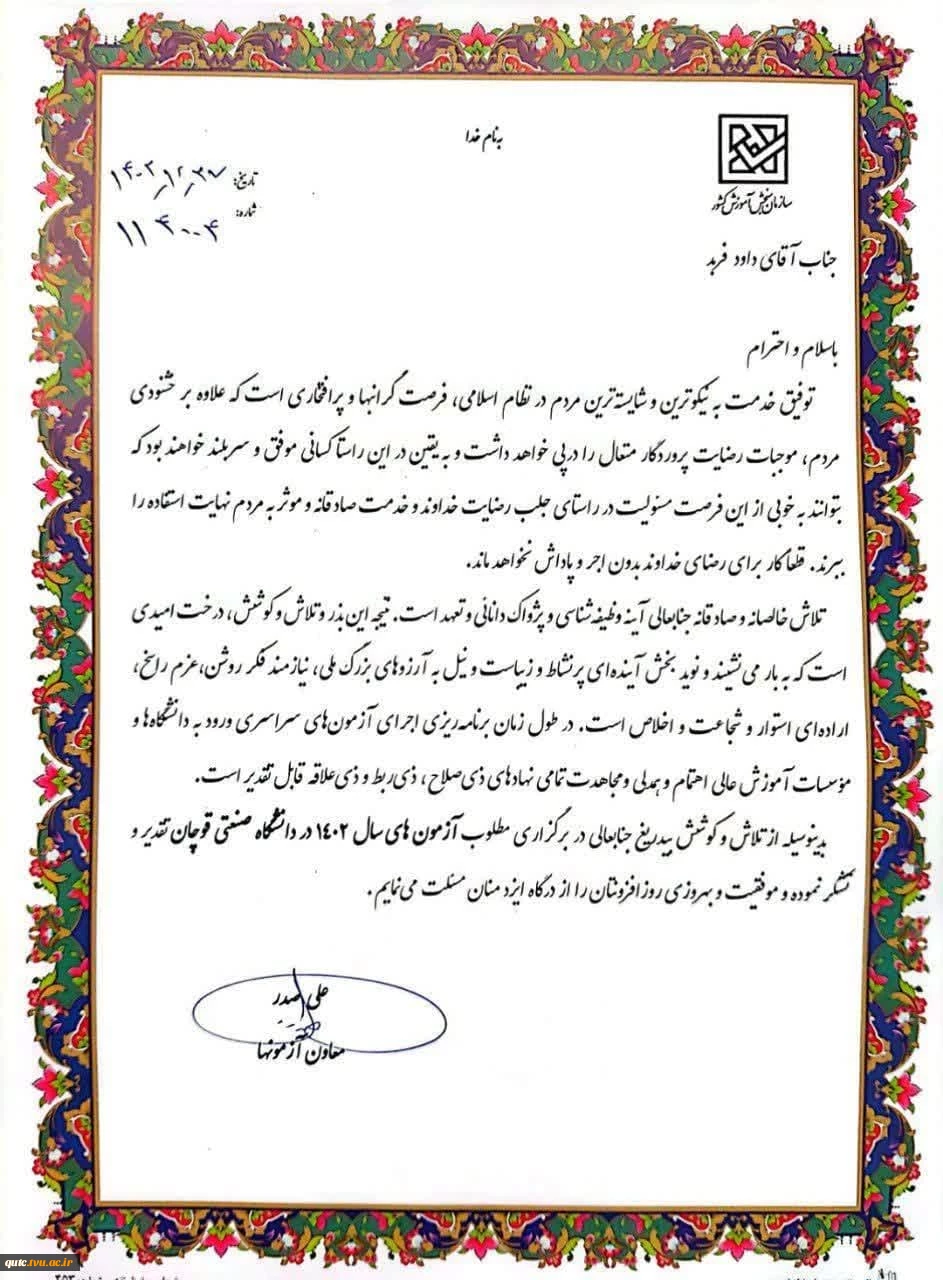 به نام خدا
سازمان سنجش آموزش کشور
تاریخ:
شماره: ۱۱۴۰۰۴
جناب آقای داود فرید
باسلام و احترام
توفیق خدمت به نیکوترین و شایسته‌ترین مردم در نظام اسلامی، فرصت گرانبها و پرافتخاری است که علاوه بر خشنودی
مردم، موجبات رضایت پروردگار متعال را در پی خواهد داشت و به یقین در این راستا کسانی موفق و سربلند خواهند بود که
بتوانند به خوبی از این فرصت مسئولیت در راستای جلب رضایت خداوند و خدمت صادقانه و موثر به مردم نهایت استفاده را
ببرند. قطعاً کار برای رضای خداوند بدون اجر و پاداش نخواهد ماند.
تلاش خالصانه و صادقانه جنابعالی آینه وظیفه شناسی و پژواک دانائی و تعهد است. نتیجه این بذر و تلاش و کوشش، درخت امیدی
است که به بار می نشیند و نوید بخش آینده‌ای پرنشاط و زیباست و نیل به آرزوهای بزرگ ملی، نیازمند فکر روشن، عزم راسخ،
اراده‌ای استوار و شجاعت و اخلاص است. در طول زمان برنامه‌ریزی اجرای آزمون‌های سراسری ورود به دانشگاه‌ها و
مؤسسات آموزش عالی اهتمام و همدلی و مجاهدت تمامی نهادهای ذی صلاح، ذی ربط و ذی علاقه قابل تقدیر است.
بدینوسیله از تلاش و کوشش بیدریغ جنابعالی در برگزاری مطلوب آزمون های سال ۱۴۰۲ در دانشگاه صنعتی قوچان تقدیر و
تشکر نموده و موفقیت و بهروزی روزافزونتان را از درگاه ایزد منان مسئلت می‌نماییم.
علی
معاون آزمونها
qutc.tvu.ac.ir